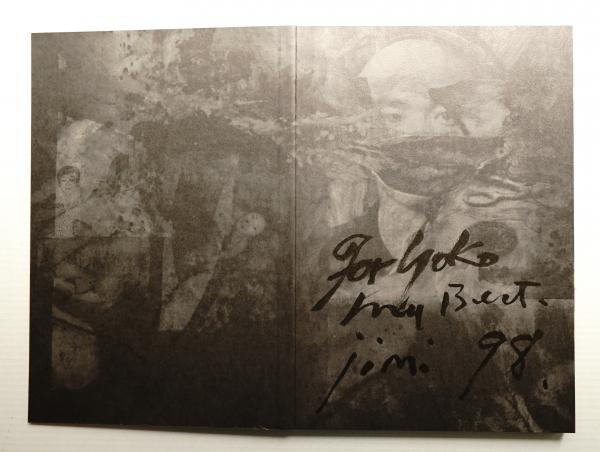 For Yoko
my Best.
jimi 98.